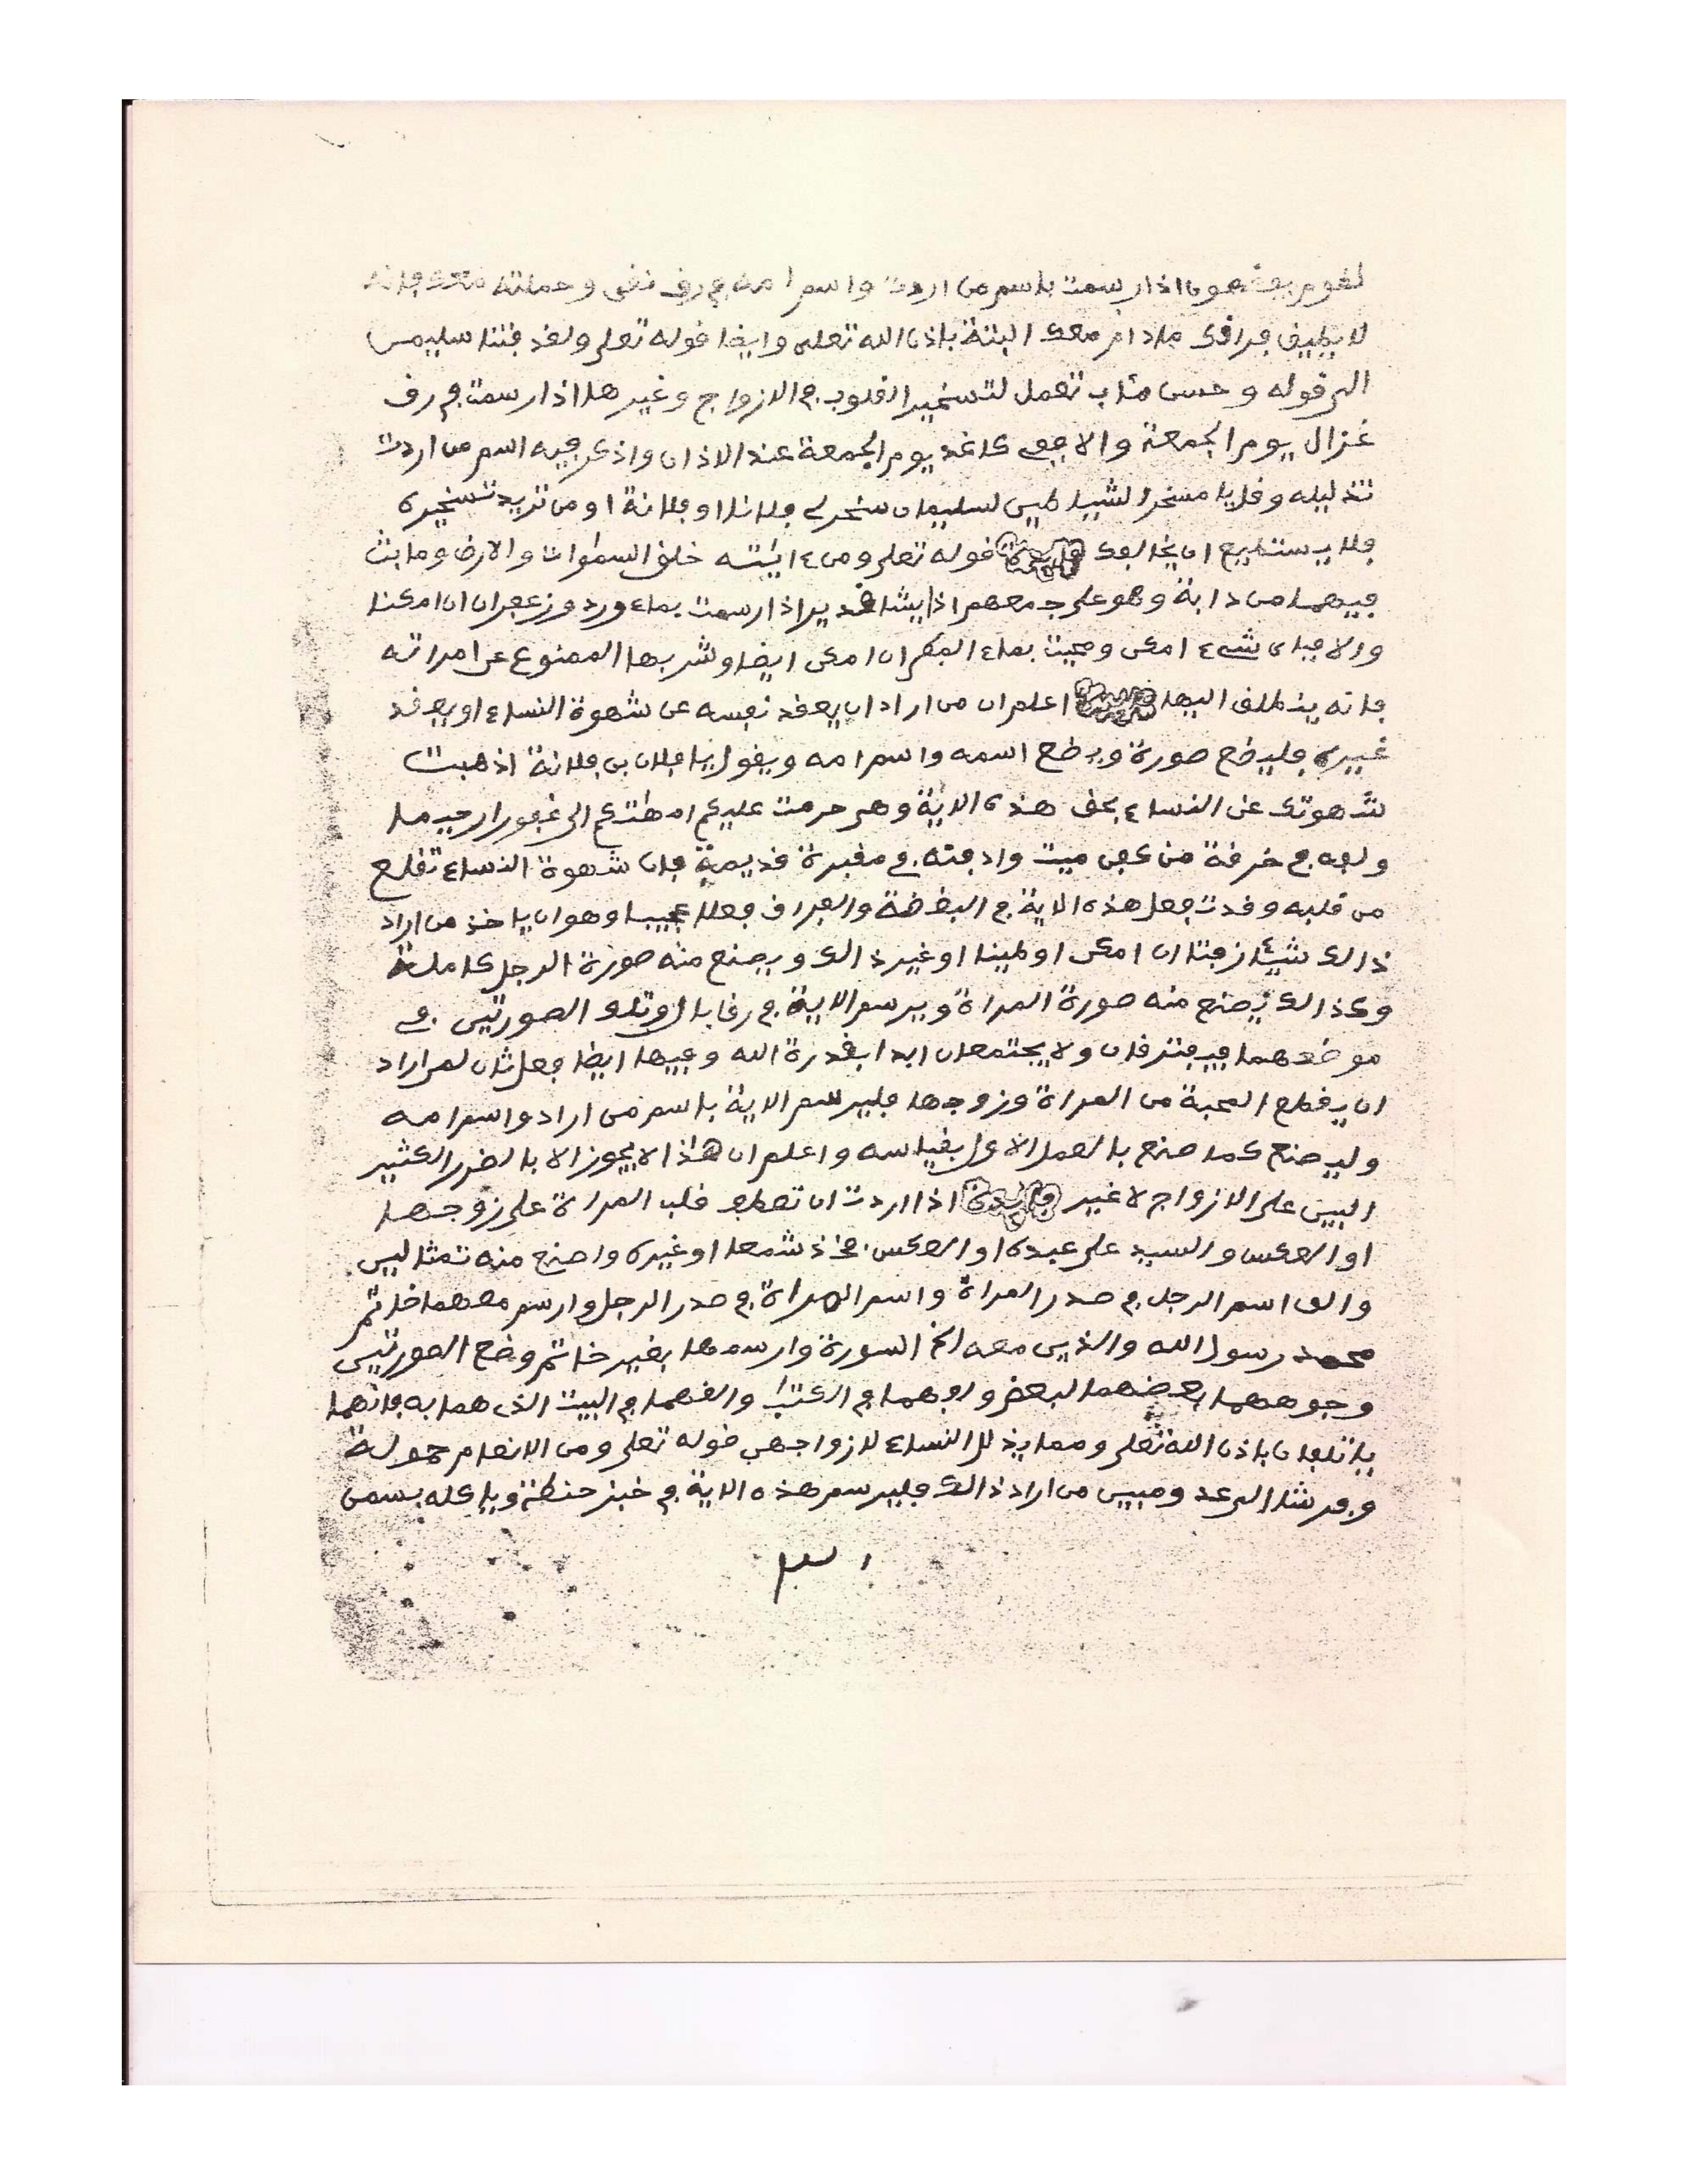 لقوم يفقهون اذا رسمت باسم من اردت واسم امه في رق نقى وحملته معك فانه
لا يطيق فراقك مادام معك البتة باذن الله تعلى وايضا قوله تعلى ولقد فتنا سليمن
الى قوله وحسن مئاب تعمل لتسخير القلوب في الازواج وغيرها اذا رسمت في رق
غزال يوم الجمعة والا ففى كاغد يوم الجمعة عند الاذان واذكر فيه اسم من اردت
تذليله وقل يا مسخر الشياطين لسليمان سخر لى فلانا او فلانة او من تريد تسخيره
فلا يستطيع ان يخالفك فايدة قوله تعلى ومن ءايٰته خلق السمٰوات والارض وما بث
فيهما من دابة وهو على جمعهم اذا يشا قدير اذا رسمت بماء ورد وزعفران ان امكنا
والا فباى شىء امكن ومحيت بماء المطر ان امكن ايضا وشربها الممنوع عن امراته
فانه ينطلق اليها اعلم ان من اراد ان يعقد نفسه عن شهوة النساء او يعقد
غيره فليضع صورة ويضع اسمه واسم امه ويقول يا فلان بن فلانة اذهبت
شهوتك عن النساء بحق هذه الاية وهى حرمت عليكم امهٰتكم الى غفورا رحيما
ولفه في خرقة من كفن ميت وادفنه في مقبرة قديمة فان شهوة النساء تقلع
من قلبه وقد تفعل هذه الاية في البغضة والفراق فعلا عجيبا وهو ان ياخذ من اراد
ذالك شيئا زفتا ان امكن او طينا او غير ذالك ويصنع منه صورة الرجل كاملة
وكذالك يصنع منه صورة المراة ويرسم الاية في رق بال وتلك الصورتين في
موضعهما فيفترقان ولا يجتمعان ابدا بقدرة الله وفيها ايضا فعل ثان لمن اراد
ان يقطع المحبة من المراة وزوجها فليرسم الاية باسم من اراد واسم امه
وليصنع كما صنع بالعمل الاول بقياسه واعلم ان هٰذا لا يجوز الا بالضرر الكثير
البين على الازواج لا غير فايدة اذا اردت ان تعطف قلب المراة على زوجها
او العكس والسيد على عبده او العكس فخذ شمعا او غيره واصنع منه تمثالين
والق اسم الرجل في صدر المراة واسم المراة في صدر الرجل وارسم معهما خاتم
محمد رسول الله والذين معه الخ السورة وارسمها بغير خاتم وضع الصورتين
وجوههما بعضهما لبعض ولفهما في الكتب والقهما في البيت الذى هما به فانهما
ياتلفان باذن الله تعلى ومما يذلل النساء لازواجهن قوله تعلى ومن الانعام حمولة
وفرشا الى عدو مبين من اراد ذالك فليرسم هذه الاية في خبز حنطة وياكله بسمن